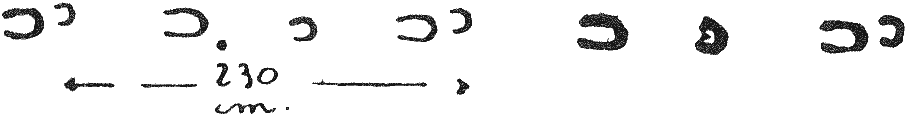 230
cm.